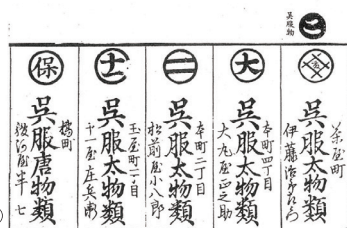 呉服物
こ
茶屋町
呉服太物類
伊藤治郎左ヱ門
大
本町四丁目
呉服太物類
大丸屋正之助
二
本町二丁目
呉服太物類
松前屋小八郎
十一
玉屋町二丁目
呉服太物類
十一屋庄兵衛
保
橘町
呉服唐物類
駿河屋半七